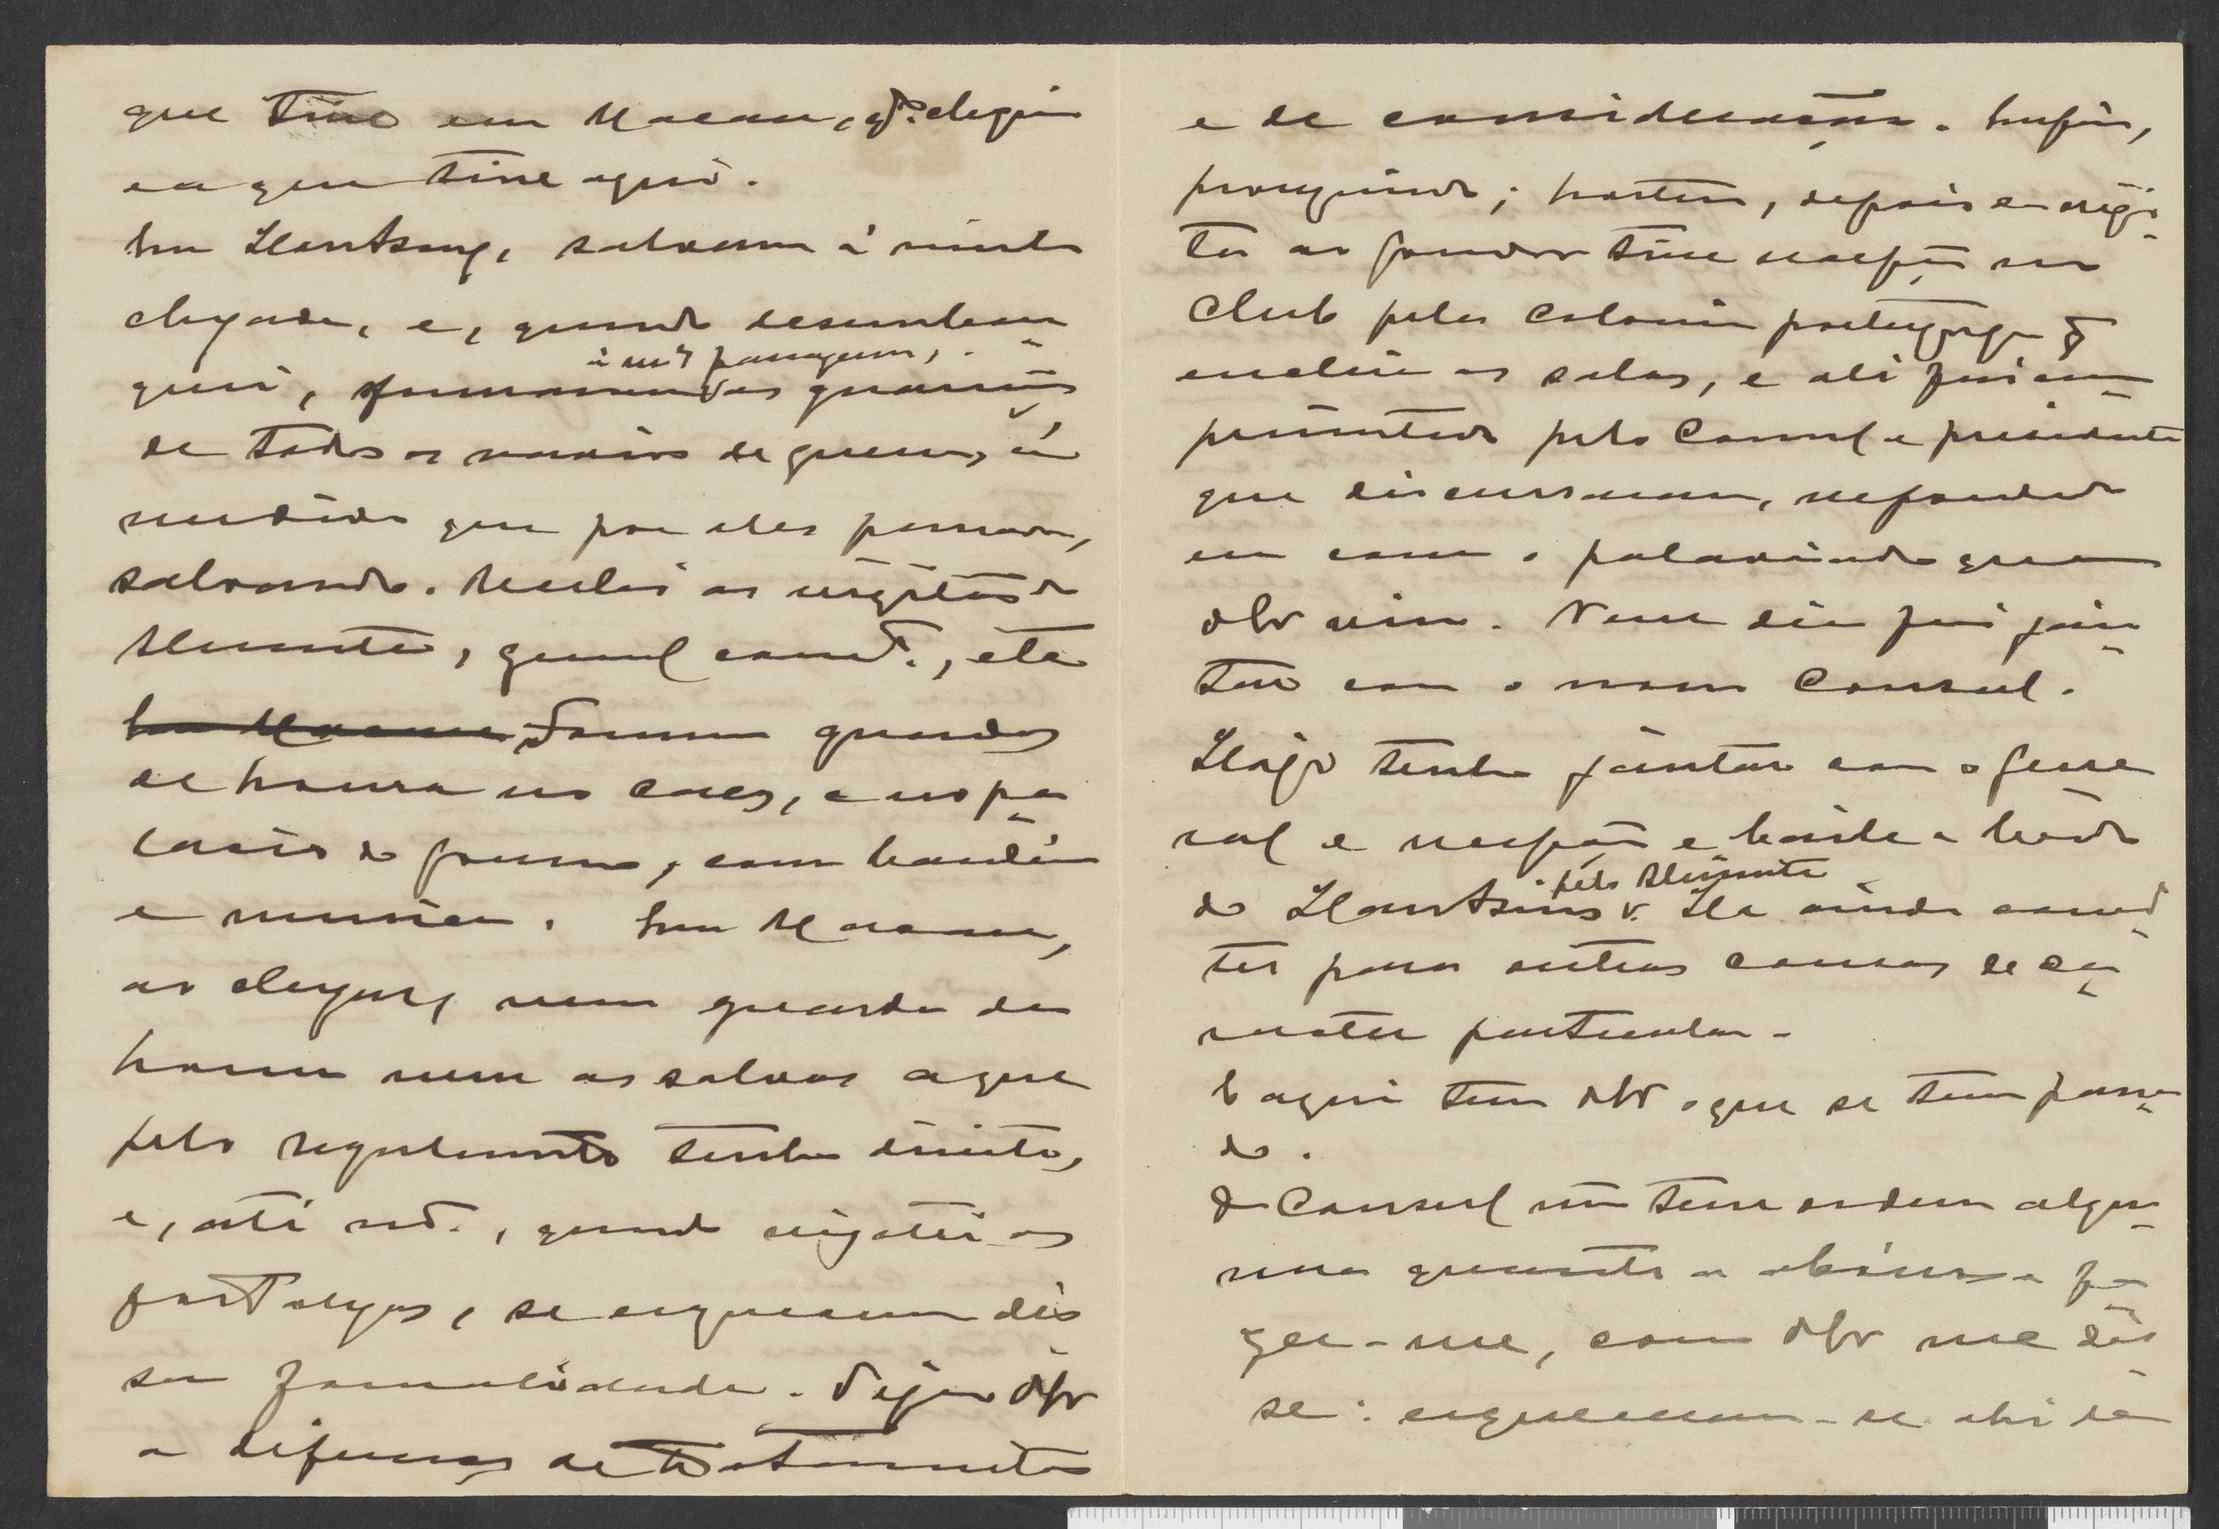 que tive em Macau, qdo cheguei
e a que tive aqui.
Em Hontkong, salvaram á minha
chegada, e, quando desembar-
quei, formaram á ma passagem, as guarnições
de todos os navios de guerra, á
medida que por eles passava,
salvando. Recebi as visitas do
Almirante, general comde., etc
Em Macau Formou guardas
de honra no caes, e no pa-
lacio do governo, com bandeira
e musica. Em Macau,
ao chegar, nem guarda de
honra nem as salvas a que
pelo regulamento tenho direito,
e, até nd., quando visitei as
fortalezas, se esqueceram des-
sa formalidade. Veja VExa
a diferença de tratamento
e de consideração. Enfim,
prosseguindo; hontem, depois de visi-
tar as bandas tive recepção no
Club pela colonia portugueza q
enchia as salas, e ali fui cum-
primentado pelo Consul e presidente
que discursaram, respondendo
eu com o palavriado que
VExa viu. Nesse dia fui jan-
tar com o nosso Consul.
Hoje tenho jantar com o gene-
ral e recepção e baile a bordo
do Hawkins pelo Almirante. Ha ainda convi-
tes para outras cousas de ca-
racter particular.
E aqui tem VExa o que se tem passa-
do.
O Consul não tem ordem algu-
ma quanto a abonos a fa-
zer-me, como VExa me dis-
se: esqueceram-se ahi de